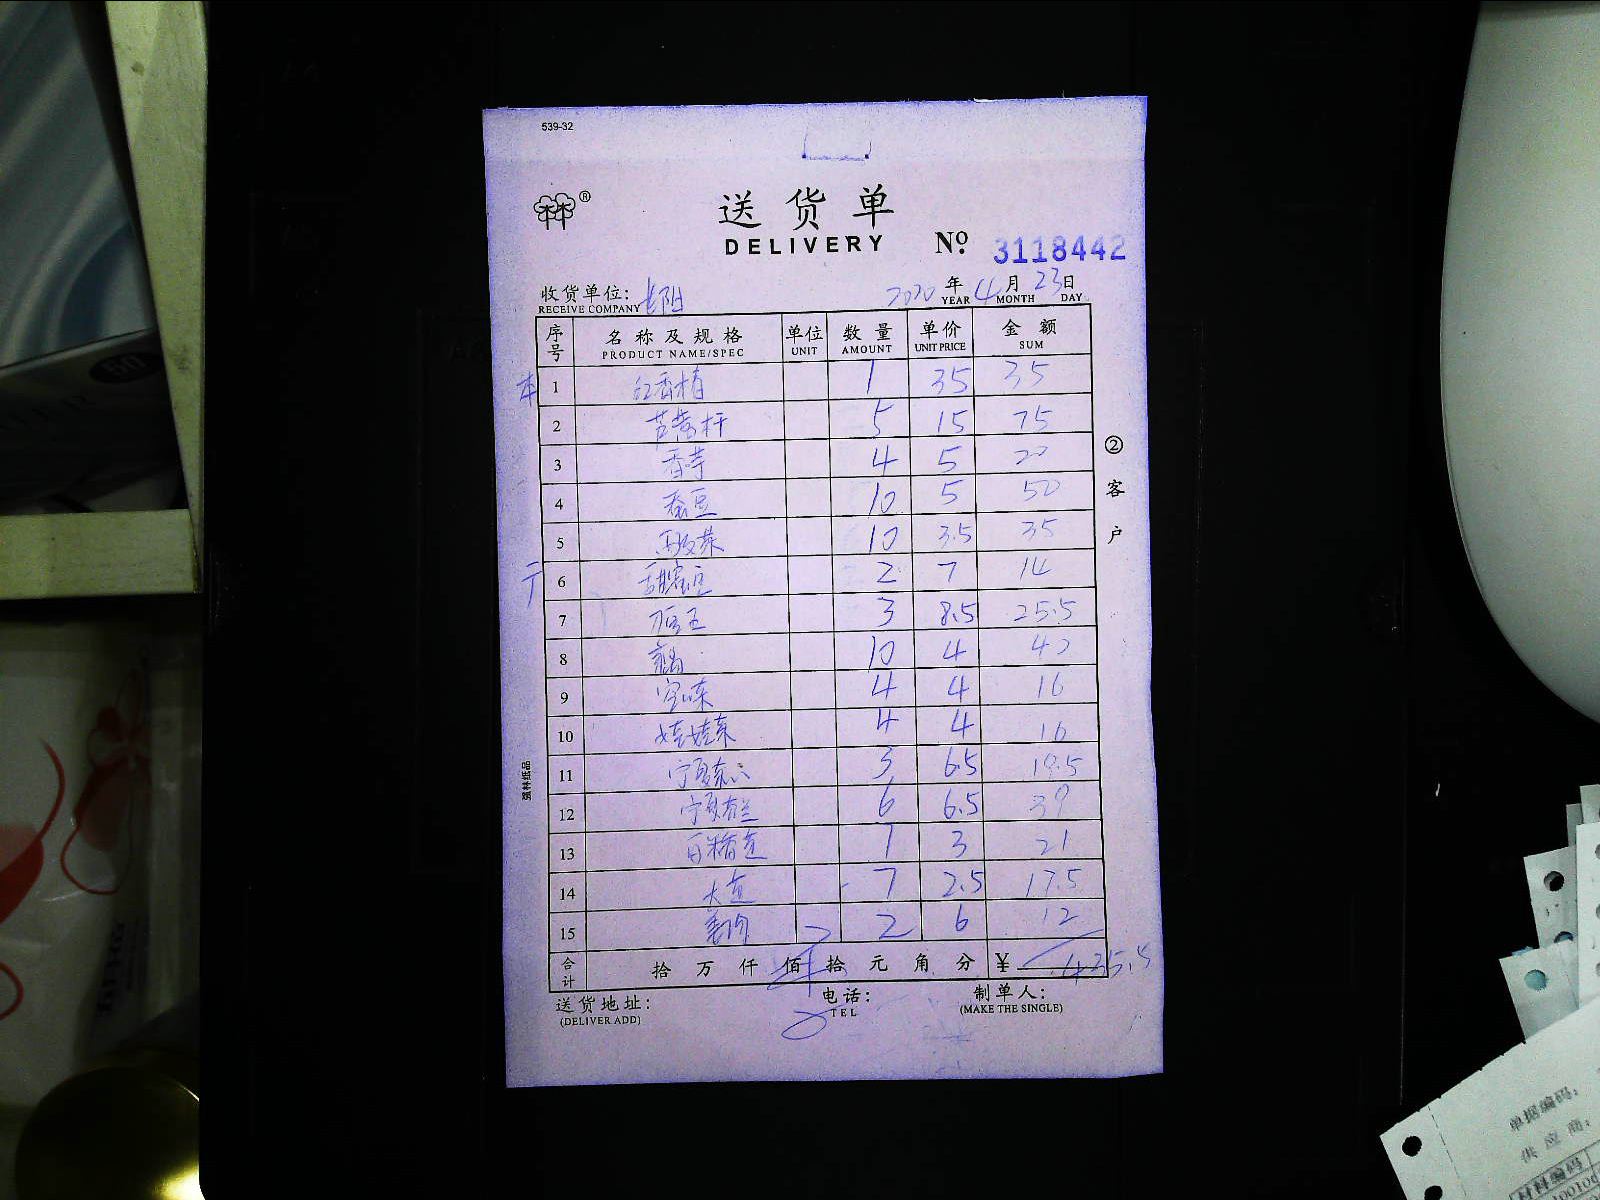 539-32
®
送货单
DELIVERY
Nº. 3118442
收货单位:
RECEIVE COMPANY
2020 年 4 月 23 日
YEAR MONTH DAY
序号 名称及规格 单位 数量 单价 金额
PRODUCT NAME/SPEC UNIT AMOUNT UNIT PRICE SUM
1 红香椿 1 35 35
2 芦蒿杆 5 15 75
3 香芋 4 5 20
4 蚕豆 10 5 50
5 10 3.5 35
6 甜蜜豆 2 7 14
7 3 8.5 25.5
8 10 4 40
9 4 4 16
10 娃娃菜 4 4 16
11 宁夏菜心 3 6.5 19.5
12 宁夏芥兰 6 6.5 39
13 7 3 21
14 大 7 2.5 17.5
15 2 6 12
合计 拾 万 仟 佰 拾 元 角 分 ¥ 435.5
送货地址: 电话: 制单人:
(DELIVER ADD) TEL (MAKE THE SINGLE)
② 客户
强林纸品
单据编码:
供应商:
材料编码